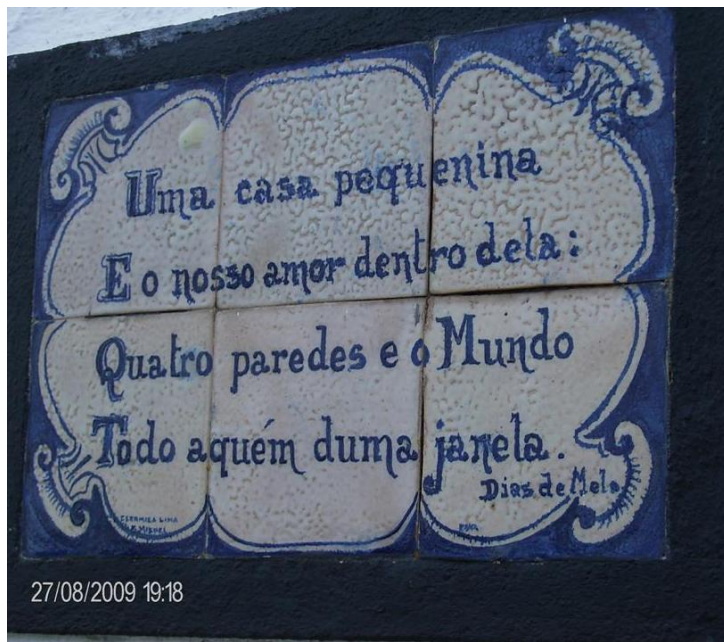 Uma casa pequenina
E o nosso amor dentro dela:
Quatro paredes e o Mundo
Todo aquém duma janela.
Dias de Melo
CERAMICA LIMA
27/08/2009 19:18